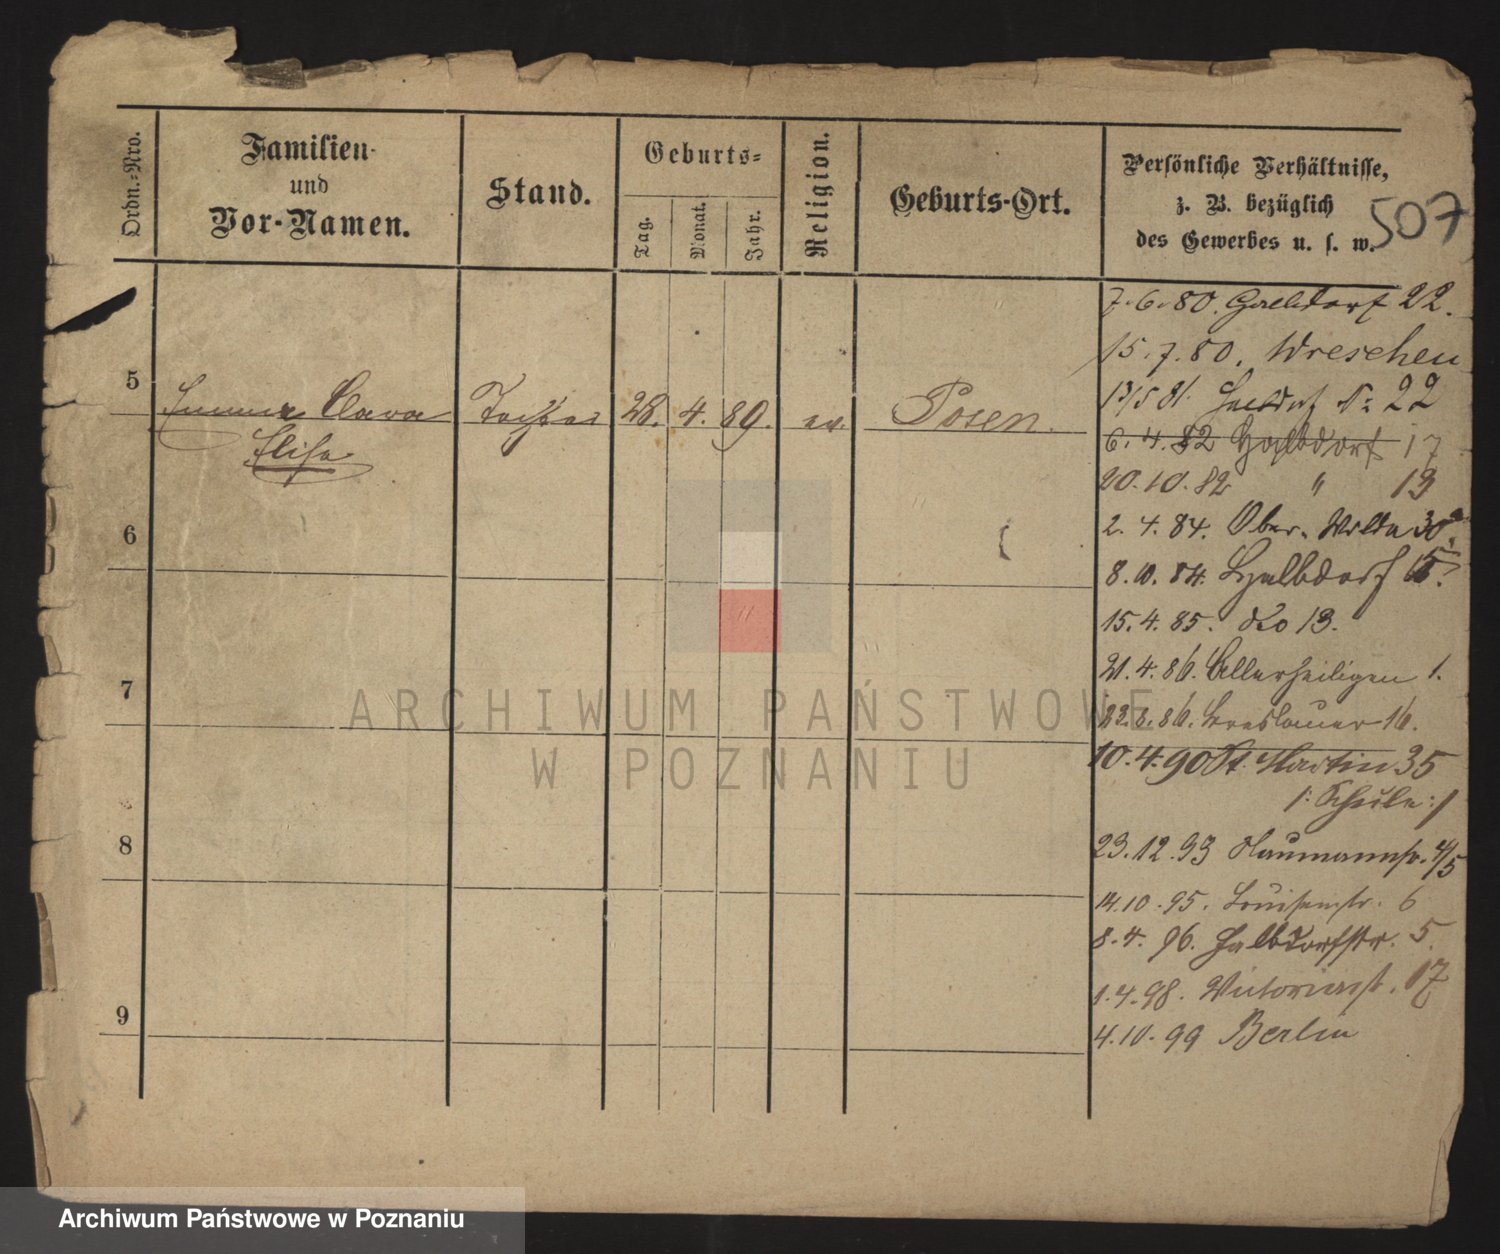 Ordn.-Nro.
Familien-
und
Vor-Namen.
Stand.
Geburts-
Tag.
Monat.
Jahr.
Religion.
Geburts-Ort.
Persönliche Verhältnisse,
z. B. bezüglich
des Gewerbes u. s. w.
507
7. 6. 80. Halbdorf 22.
15. 7. 80. Wreschen
13/5 81. Halbdf N: 22
5 Emma Clara Tochter 28. 4. 89. ev. Posen.
Elise
6. 4. 82 Halbdorf 17
20. 10. 82 " 13
2. 4. 84. Ober. Wilda 30a
6
8. 10. 84. Halbdorf 15.
15. 4. 85. do 13.
21. 4. 86. Allerheiligen 1.
7
23. 8. 86. Breslauer 16.
10. 4. 90 St. Martin 35
/: Schule :/
8
23. 12. 93 Naumannstr. 4/5
14. 10. 95. Louisenstr. 6
8. 4. 96. Halbdorfstr. 5.
1. 4. 98. Victoriastr. 17
9
4. 10. 99 Berlin
ARCHIWUM PAŃSTWOWE
W POZNANIU
Archiwum Państwowe w Poznaniu